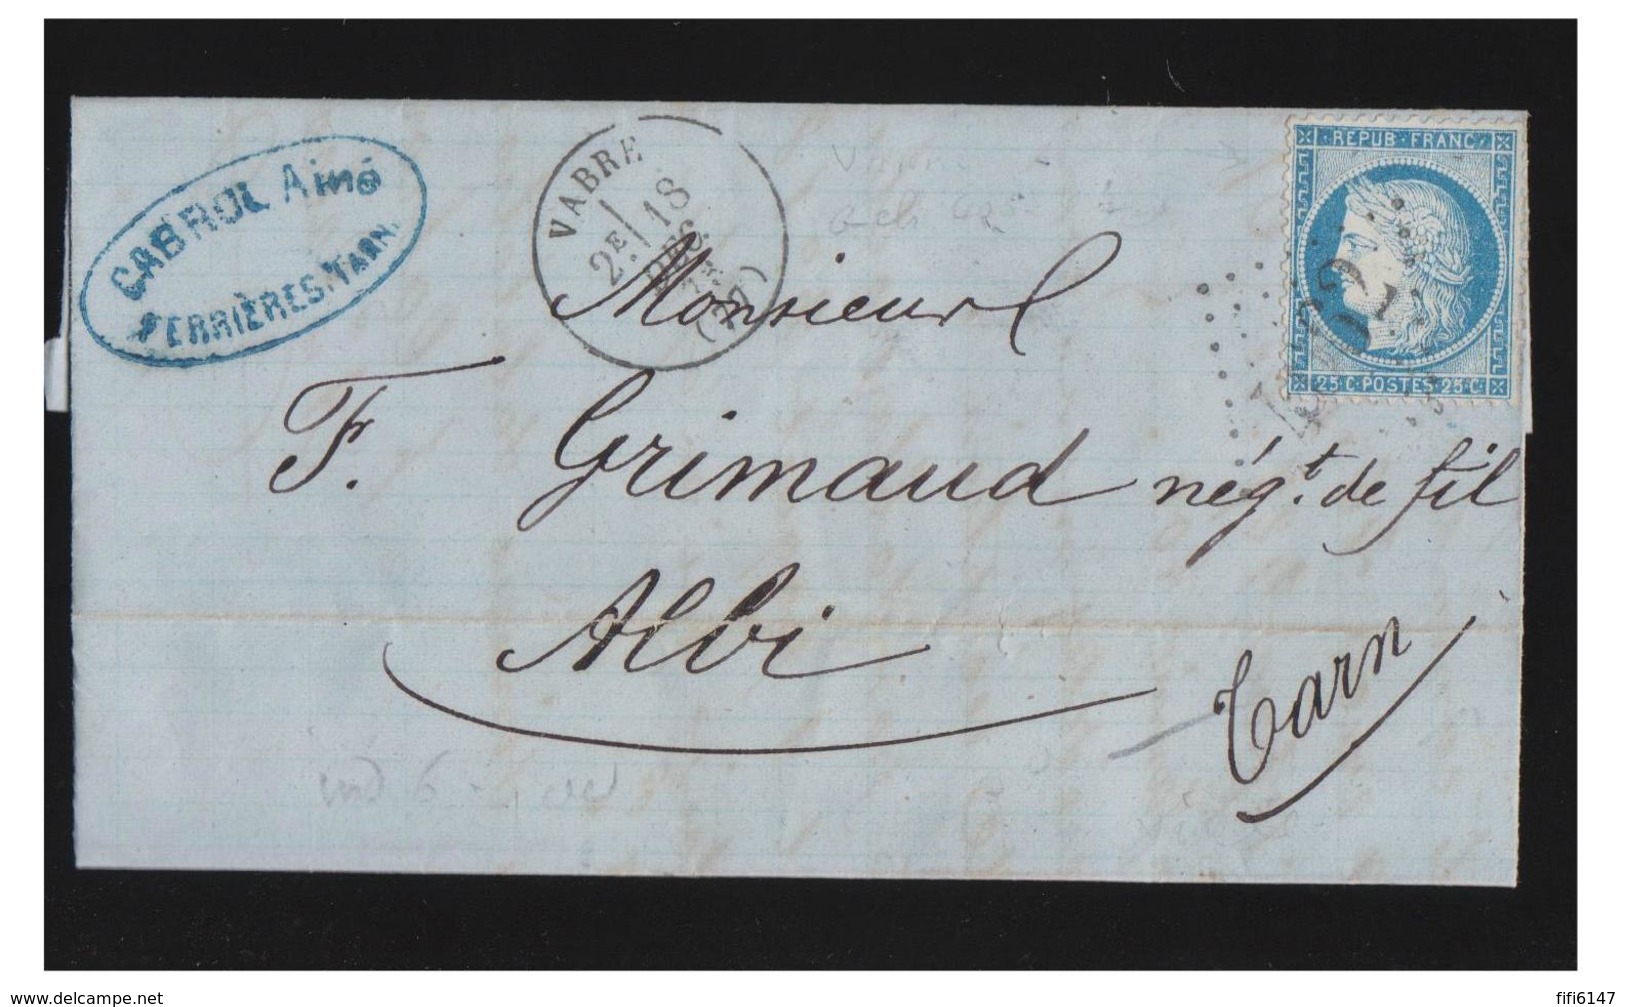 CABROL Ainé
FERRIÈRES (TARN)
VABRE
2E 18
DEC
(77)
REPUB·FRANC
25·C·POSTES·25·C
Monsieur
F. Grimaud négt. de fil
Albi
Tarn
www.delcampe.net
fifi6147